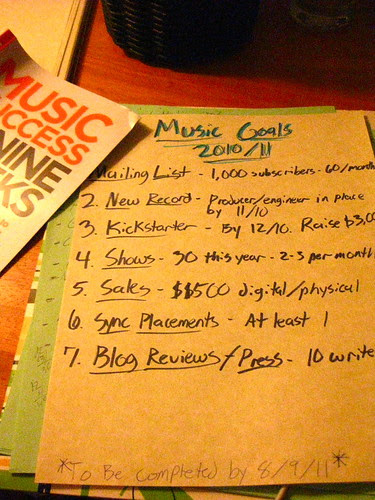 MUSIC
SUCCESS
NINE
Music Goals
2010/11
Mailing List - 1,000 subscribers - 60/month
2. New Record - Producer/engineer in place
by 11/10
3. Kickstarter - By 12/10. Raise $3,00
4. Shows - 30 this year - 2-3 per month
5. Sales - $$500 digital/physical
6. Sync Placements - At least 1
7. Blog Reviews/Press - 10 write
*To Be completed by 8/9/11*